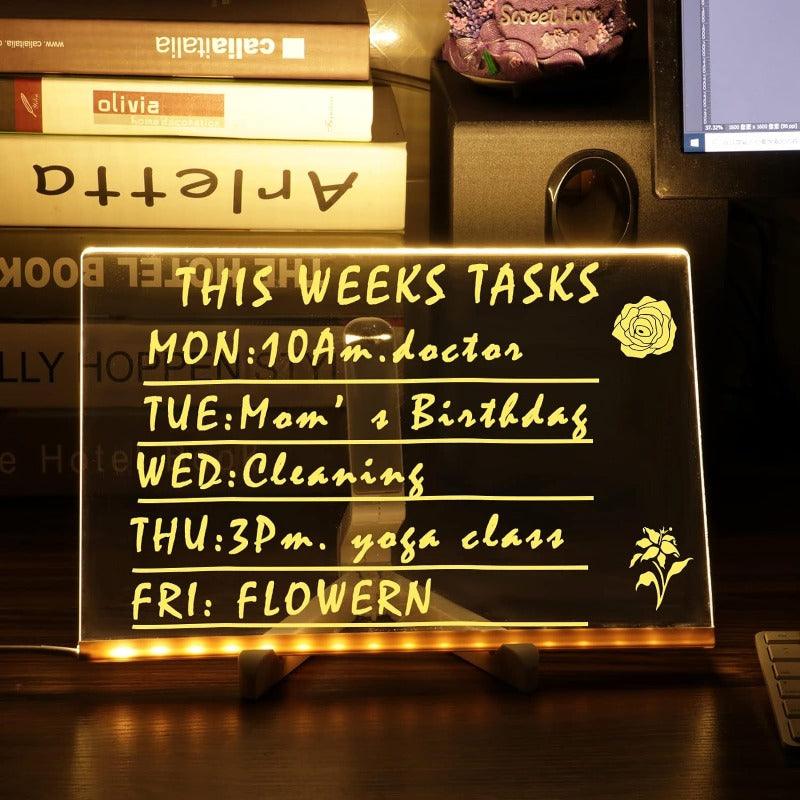 Sweet Love
www.caliaitalia.
caliaitalia
olivia
home decoration
Arletta
THE HOTEL BOOK
LLY HOPPEN STY
e Hotel Book
THIS WEEKS TASKS
MON:10Am.doctor
TUE:Mom's Birthdag
WED:Cleaning
THU:3Pm. yoga class
FRI: FLOWERN